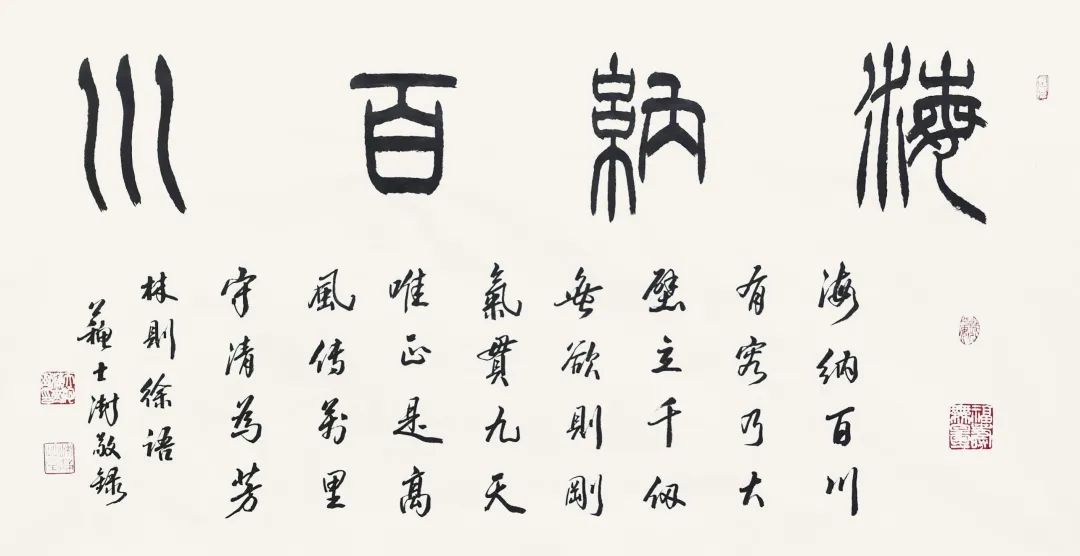 海納百川
海納百川
有容乃大
壁立千仞
無欲則剛
氣貫九天
唯正是高
風傳萬里
守清為芳
林則徐語
蘇士澍敬録
福壽無量